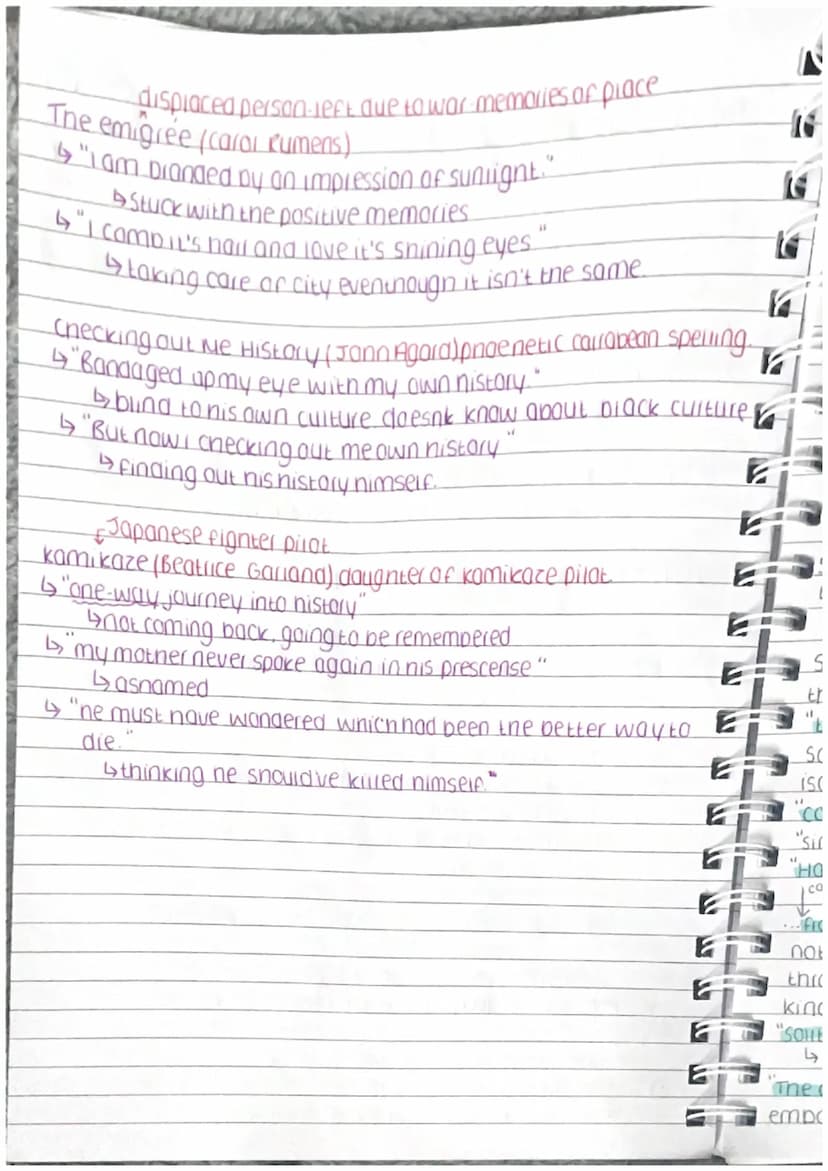 displaced person-left due to war-memories of place
The emigrée (Carol Rumens)
↳ "I am branded by an impression of sunlight."
↳ Stuck with the positive memories
↳ "I comb it's hair and love it's shining eyes"
↳ taking care of city eventhough it isn't the same.
Checking out Me History (John Agard) phoenetic carrabean spelling.
↳ "Bandaged up my eye with my own history"
↳ blind to his own culture doesnt know about black culture
↳ "But now I checking out me own history"
↳ finding out his history himself.
↳ Japanese fighter pilot
kamikaze (Beatrice Garland) daughter of kamikaze pilot
↳ "one-way journey into history"
↳ not coming back, going to be remembered
↳ "my mother never spoke again in his prescense"
↳ ashamed
↳ "he must have wondered which had been the better way to
die."
↳ thinking he should've killed himself."
S
th
"t
so
iso
"co
"sir
"Ha
co
...fro
not
thro
kind
"soli
↳
"The
empo